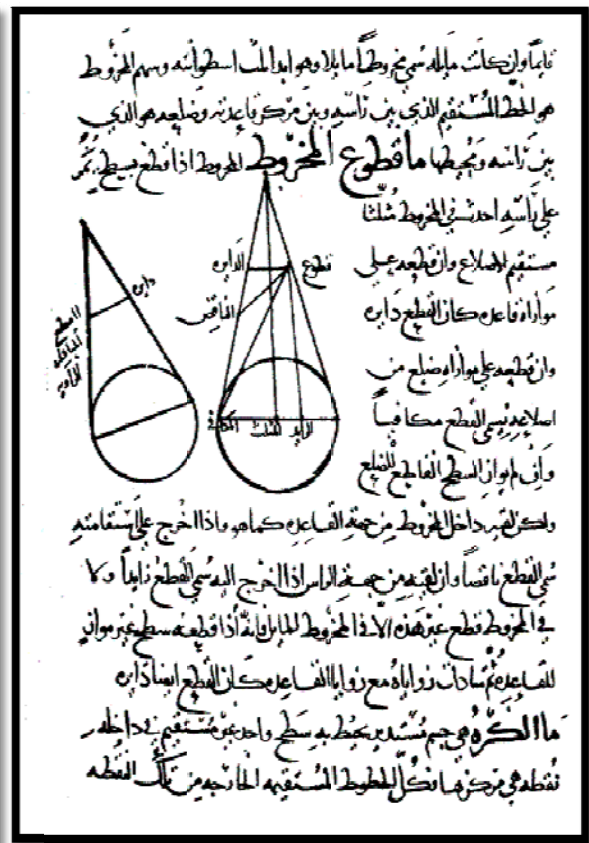 قائماً وان كانت مايله سُمي مخروطاً مايلا وهو ابدا ثلث اسطوانته وسهم المخروط
هو الخط المستقيم الذي بين راسه وبين مركز قاعدته وضلعه هو الذي
بين راسه ومحيطها ما قطوع المخروط المخروط اذا قطع بسطح يمر
علي راسه احدث في المخروط مثلثا
مستقيم الاضلاع وان قطعه علي
موازاة قاعدته كان القطع دايره
وان قطعه علي موازاه ضلع من
اضلاعه يسمي القطع مكافياً
وان لم يواز السطح القاطع للضلع
ولكن لقيه داخل المخروط من جهة القاعده كما هو واذا اخرج علي استقامته
سُمي القطع ناقصاً وان لقيه من جهة الراس اذا اخرج اليه سُمي القطع زايداً ولا
في المخروط قطع غير هذه الا في المخروط المايل فانه اذا قطعه سطح غير مواز
للقاعدة ثم تساوت زواياه مع زوايا القاعده كان القطع ايضا دايره
ما الكره هي جسم مستدير يحيط به سطح واحد غير مستقيم في داخله
نقطه هي مركزها وكل الخطوط المستقيمه الخارجه من تلك النقطه
قطوع
الدايره
الناقص
المكافي
المثلث
الزايد
دايره